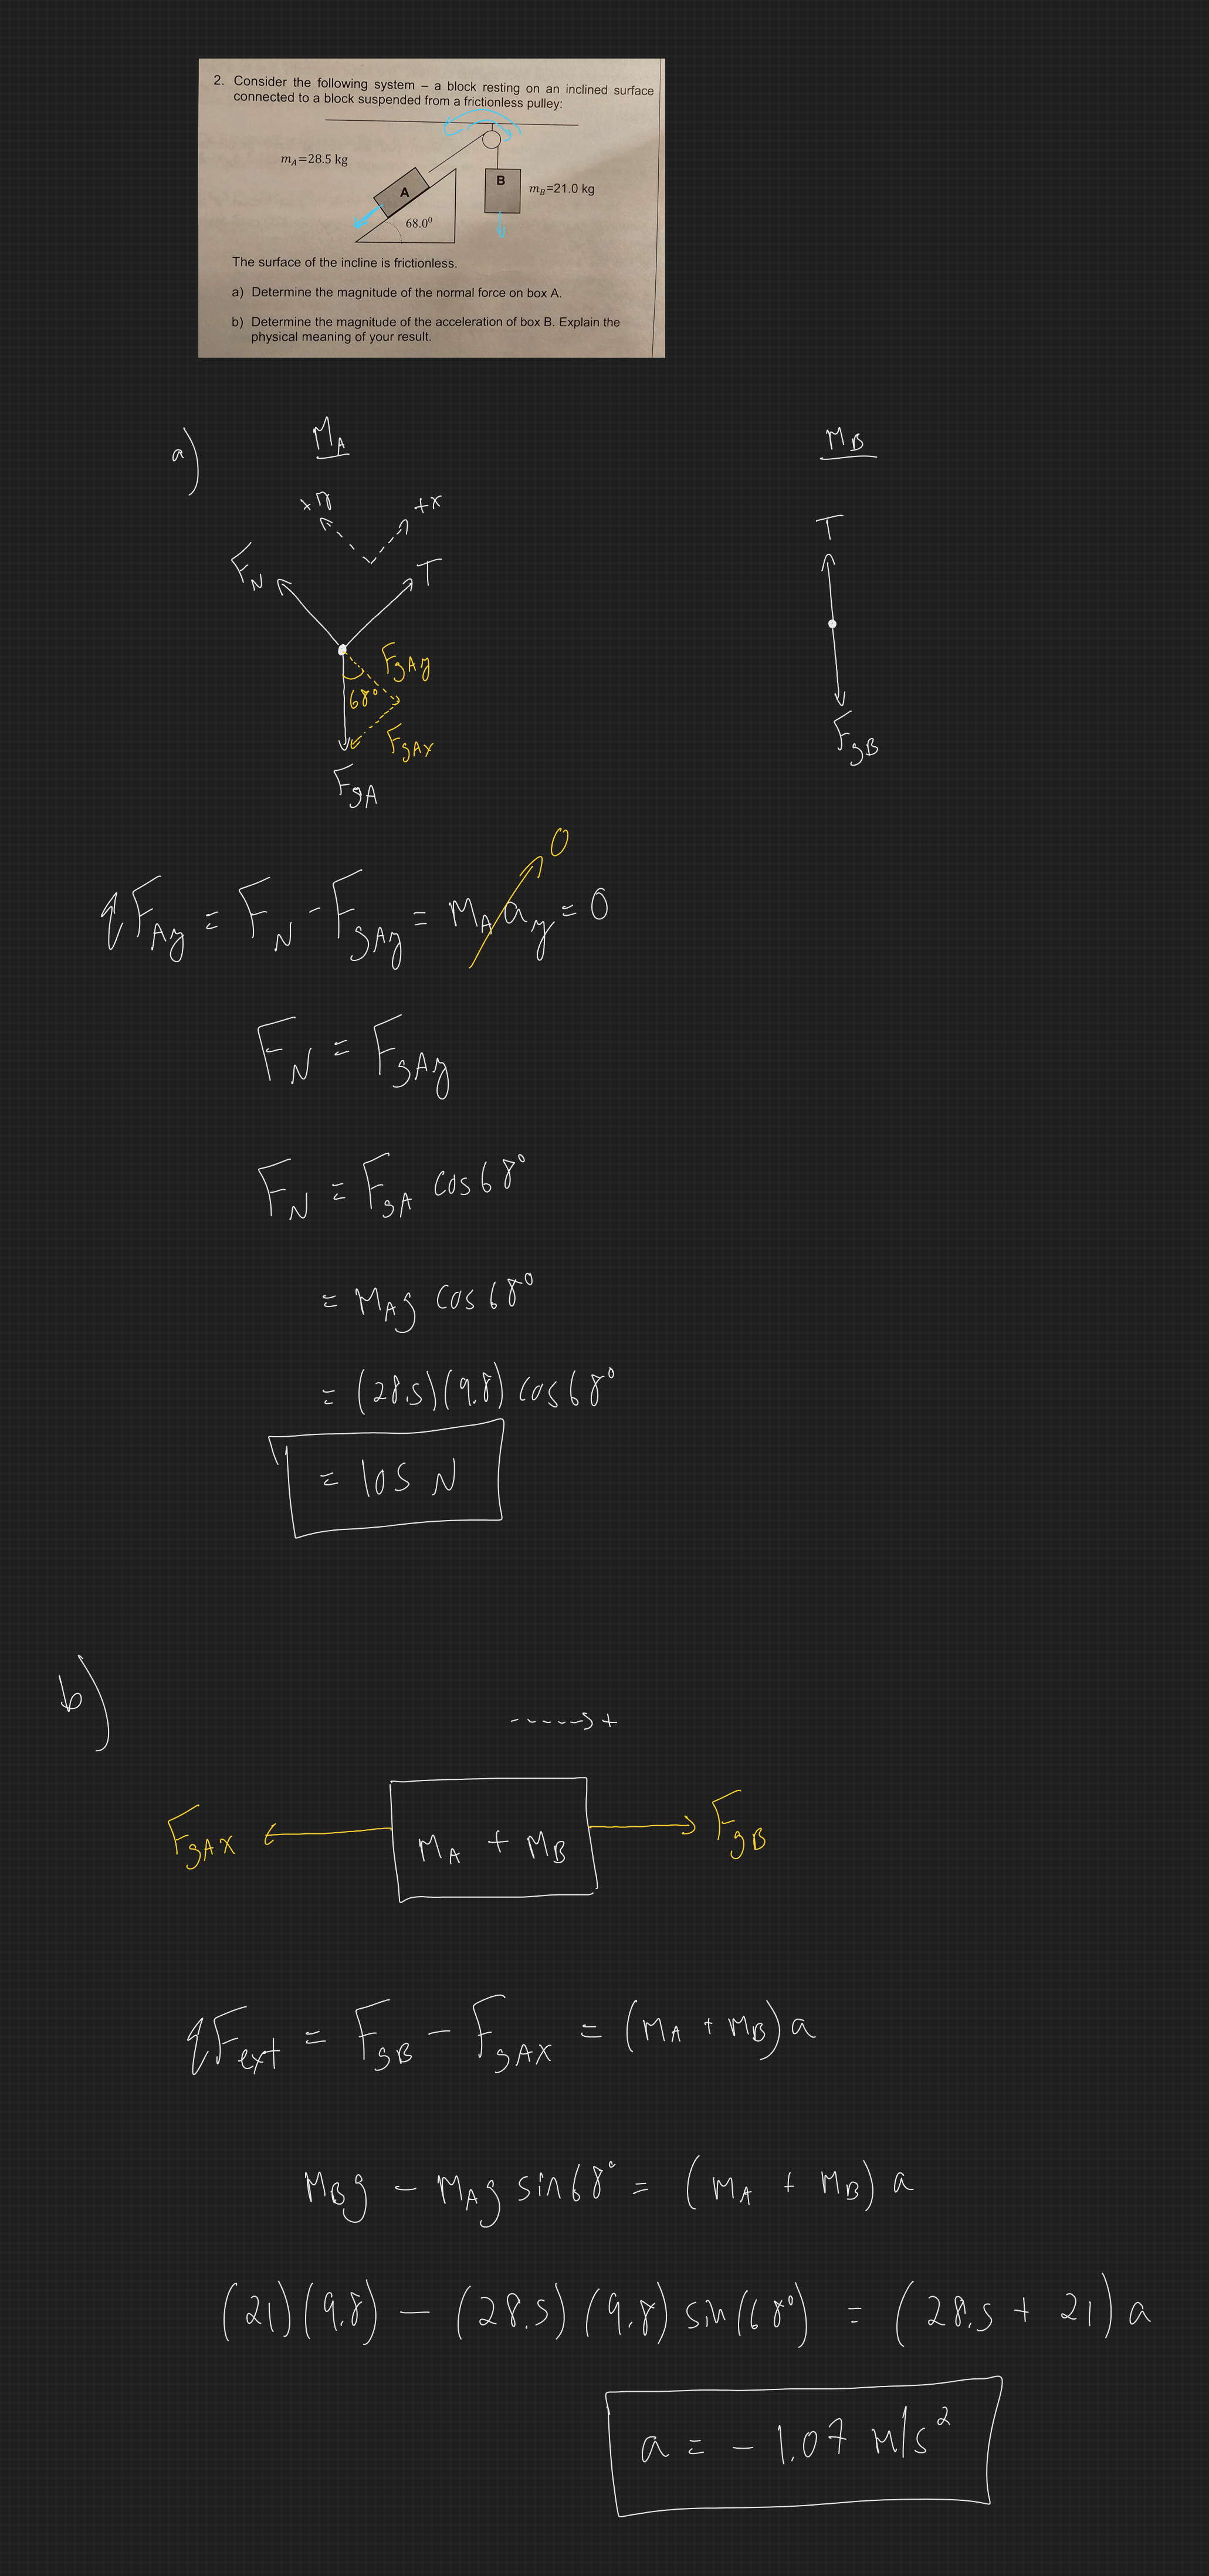 2. Consider the following system – a block resting on an inclined surface
connected to a block suspended from a frictionless pulley:
m_A=28.5 kg
A
B
m_B=21.0 kg
68.0⁰
The surface of the incline is frictionless.
a) Determine the magnitude of the normal force on box A.
b) Determine the magnitude of the acceleration of box B. Explain the
physical meaning of your result.
a)
M_A
M_B
+y
+x
F_N
T
F_gAy
68°
F_gAx
F_gA
T
F_gB
ΣF_Ay = F_N - F_gAy = m_A a_y = 0
0
F_N = F_gAy
F_N = F_gA cos68°
= m_A g cos68°
= (28.5)(9.8) cos68°
= 105 N
b)
+
F_gAx
m_A + m_B
F_gB
ΣF_ext = F_gB - F_gAx = (m_A + m_B) a
m_B g - m_A g sin68° = (m_A + m_B) a
(21)(9.8) - (28.5)(9.8) sin(68°) = (28.5 + 21) a
a = - 1.07 m/s²